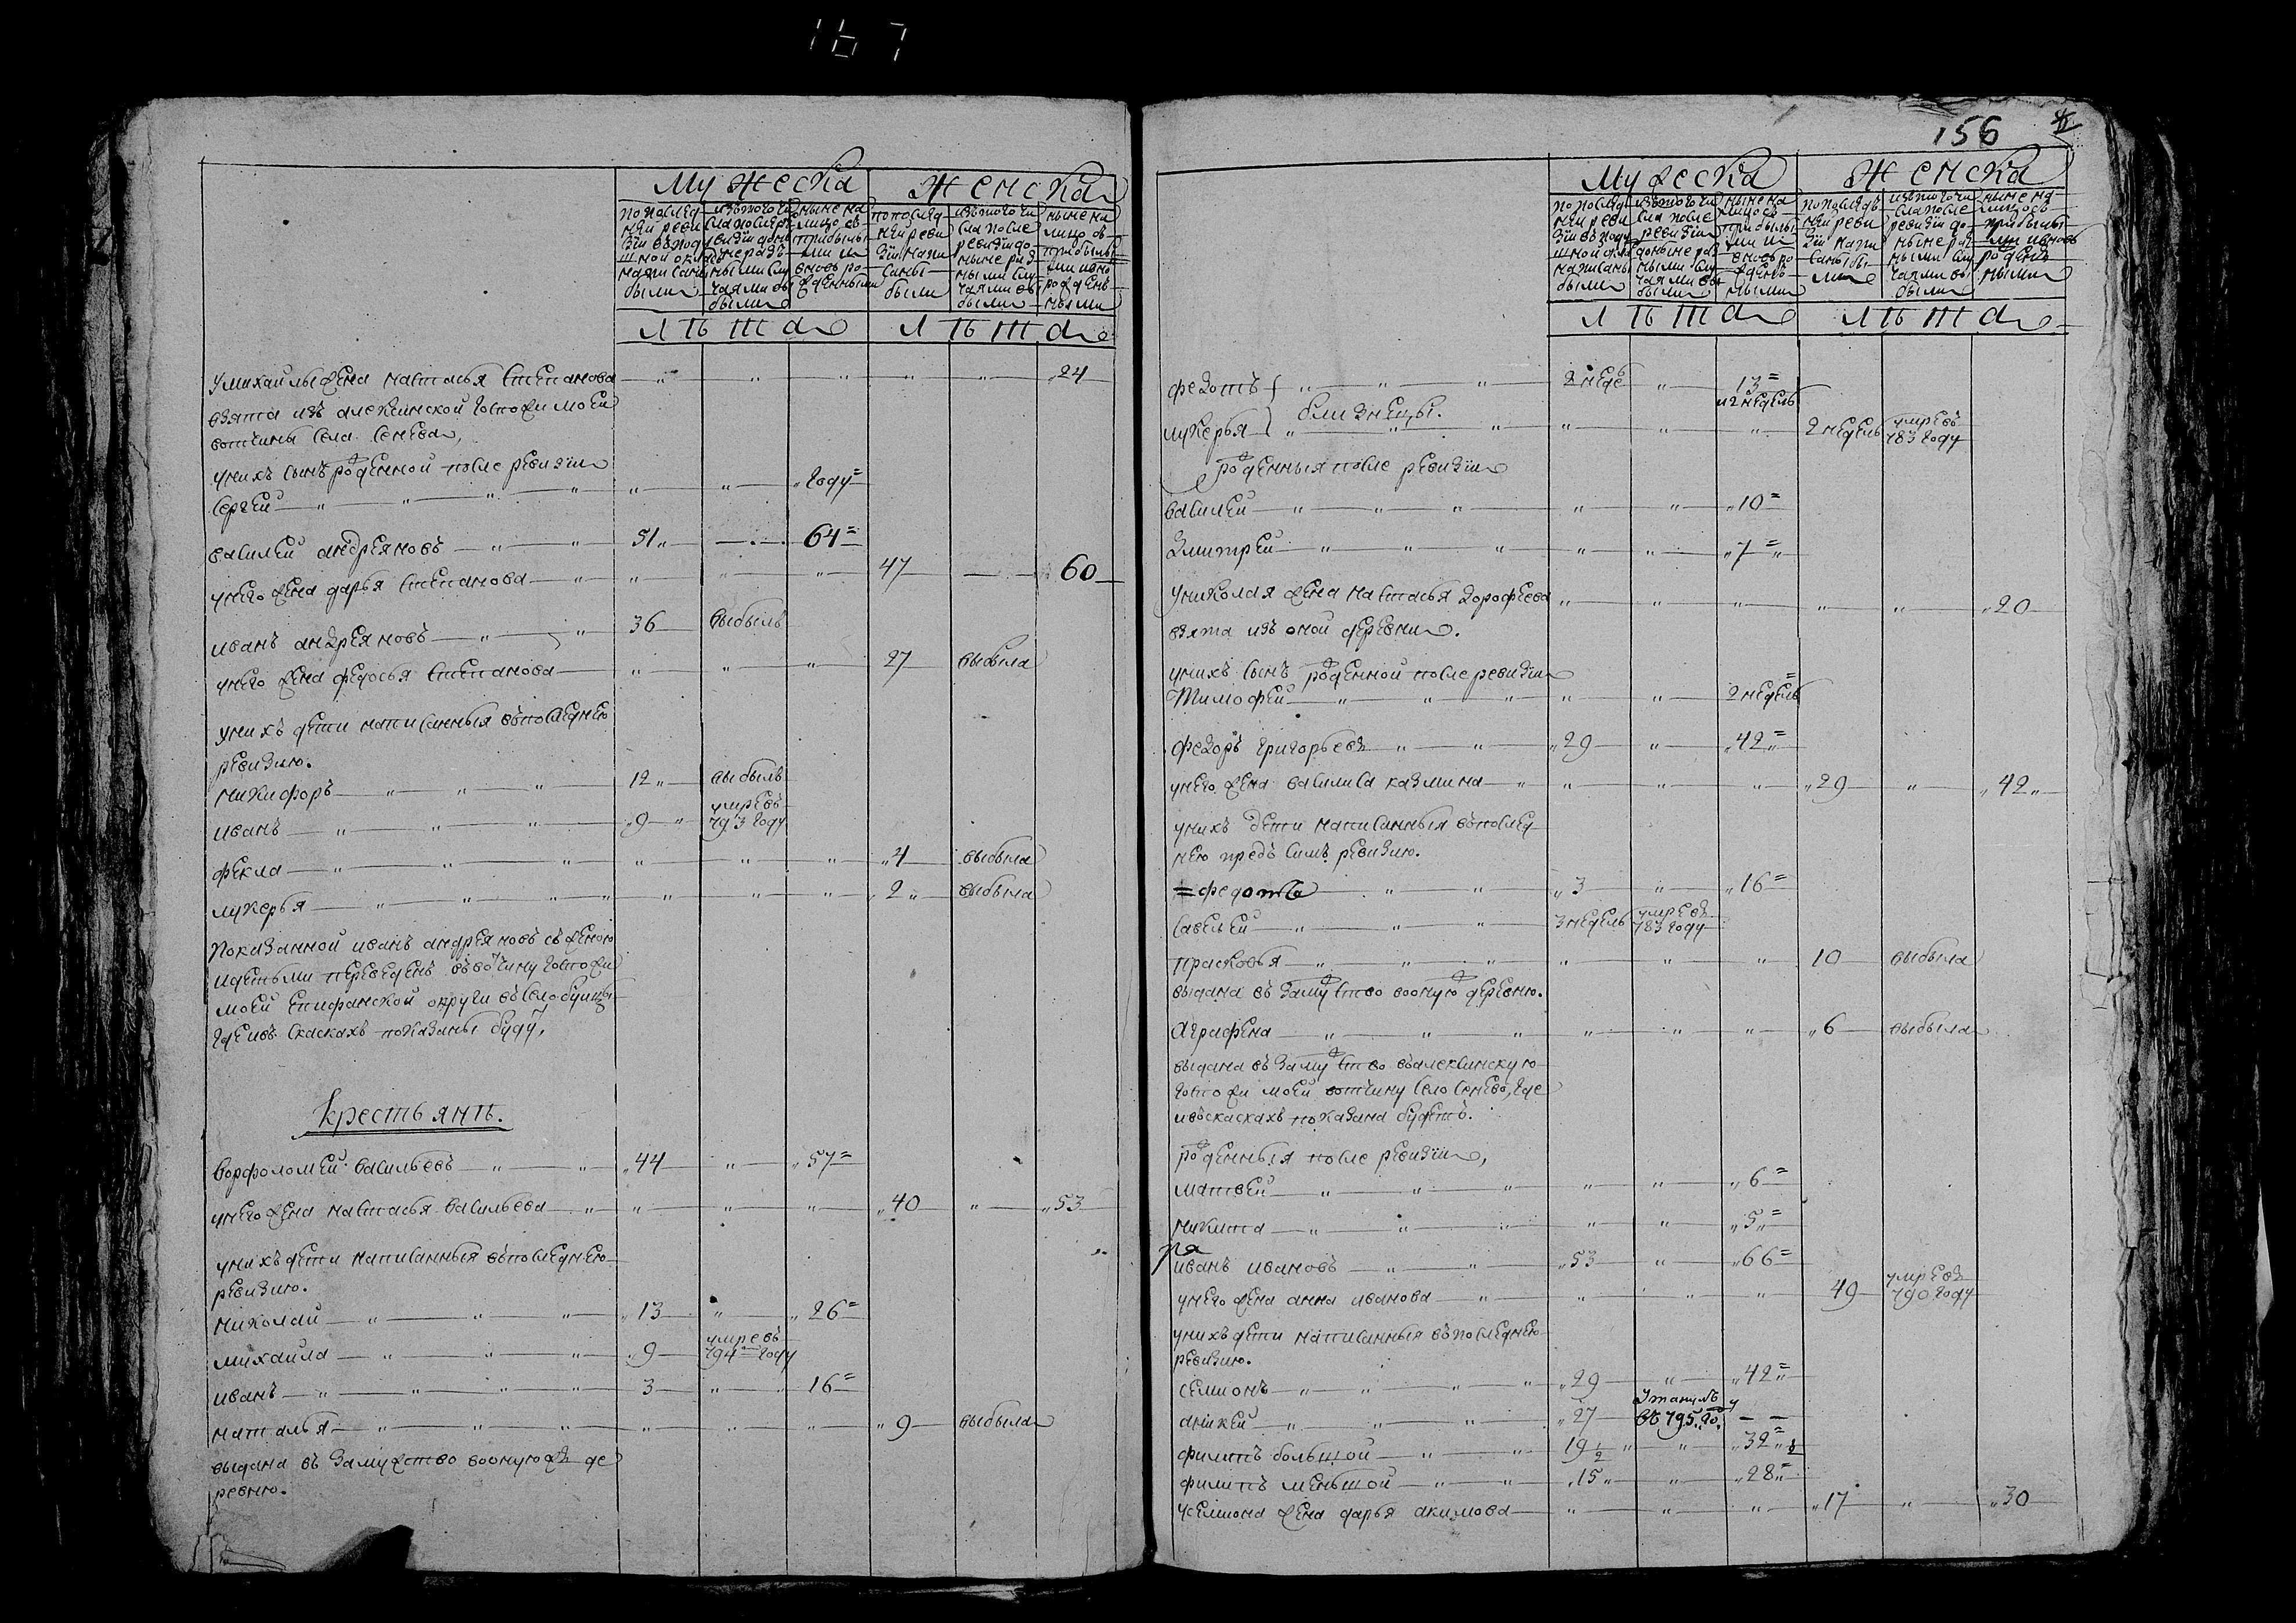 167
Мужеска Женска
по послед
ней реви
зіи въ поду
шной окладъ
написаны
были
изъ того чи
сла после ре
визіи до ны
не разъ
ными слу
чаями вы
были
ныне на
лицо съ
прибылы
ми и
вновь ро
жденными
по послед
ней реви
зіи напи
саны
были
изъ того чи
сла после
ревизіи до
ныне раз
ными слу
чаями вы
были
ныне на
лицо съ
прибылы
ми и вно
рожден
ными
Лѣта Лѣта
у михайлы жена настасья степанова " " " " " 24
взята изъ алексинской госпожи моей
вотчины села сенева,
у нихъ сынъ рожденной после ревизіи
сергей " " " году
василей андреяновъ 51 — 64
у него жена дарья степанова " " " 47 — 60
иванъ андреяновъ 36 выбылъ
у него жена федосья степанова " " " 27 выбыла
у нихъ дети написанныя въ последнею
ревизию.
никифоръ 12 выбылъ
иванъ 9 умре въ 793 году
фекла " " " 4 выбыла
лукерья " " " 2 выбыла
показанной иванъ андреяновъ съ женою
и детьми переведенъ въ вотчину госпожи
моей епифанской округи въ село буицы
где и въ скаскахъ показаны будут,
Крестьянъ.
ворфоломей васильевъ 44 " 57
у него жена настасья васильева " " " 40 " 53
у нихъ дети написанныя въ последнею
ревизию.
николай 13 " 26
михаила 9 умре въ 794 году
иванъ 3 " 16
наталья " " " 9 выбыла
выдана въ замужство во оную ж де
ревню.
156
Мужеска Женска
по послед
ней реви
зіи въ поду
шной окла
написаны
были
изъ того чи
сла после
ревизіи
до ныне раз
ными слу
чаями вы
были
ныне на
лицо съ
прибылы
ми и
вновь ро
жденъ
ными
по последъ
ней реви
зіи напи
саны бы
ли
изъ того чи
сла после
ревизіи до
ныне раз
ными слу
чаями вы
были
ныне на
лицо съ
прибылы
ми и вновь
рожденъ
ными
Лѣта Лѣта
федотъ " " " 2 неде " 13 и 2 недель
близнецы.
лукерья " " " 2 недель умре въ 783 году
рожденныя после ревизіи
василей " " 10
дмитрей " " 7
у николая жена настасья дорофеева " " " " " 20
взята изъ оной деревни.
у нихъ сынъ рожденной после ревизіи
тимофей " " 2 недель
федоръ григорьевъ 29 " 42
у него жена василиса казмина " " " 29 " 42
у нихъ дети написанныя въ послед
нею предъ симъ ревизию.
федотъ 3 " 16
савелей 3 недель умре въ 783 году
прасковья " " " 10 выбыла
выдана въ замужство во оную деревню.
аграфена " " " 6 выбыла
выдана въ замужство въ алексинскую
госпожи моей вотчину село сенево, где
и въ скаскахъ показана будетъ.
рожденныя после ревизіи,
матвей " " 6
никита " " 5
иванъ ивановъ 53 " 66
у него жена анна иванова " " " 49 умре въ 790 году
у нихъ дети написанныя въ последнею
ревизию.
семионъ 29 " 42
аникей 27 утанулъ въ 795 году — —
филипъ большой 19 1/2 " 32 1/2
филипъ меньшой 15 " 28
у семиона жена дарья акимова " " " 17 " 30